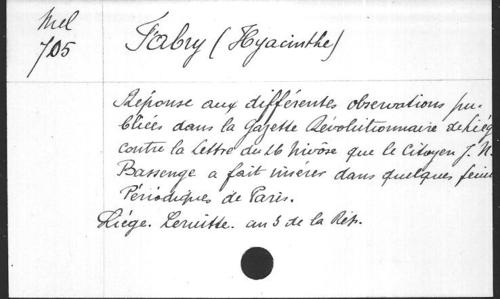 Mel
705
Fabry (Hyacinthe)
Réponse aux différentes observations pu-
bliées dans la Gazette Révolutionnaire de Liég
contre la Lettre du 16 Nivôse que le Citoyen J. N.
Bassenge a fait insérer dans quelques feuil
Périodiques de Paris.
Liége. Leruitte. an 3 de la Rép.